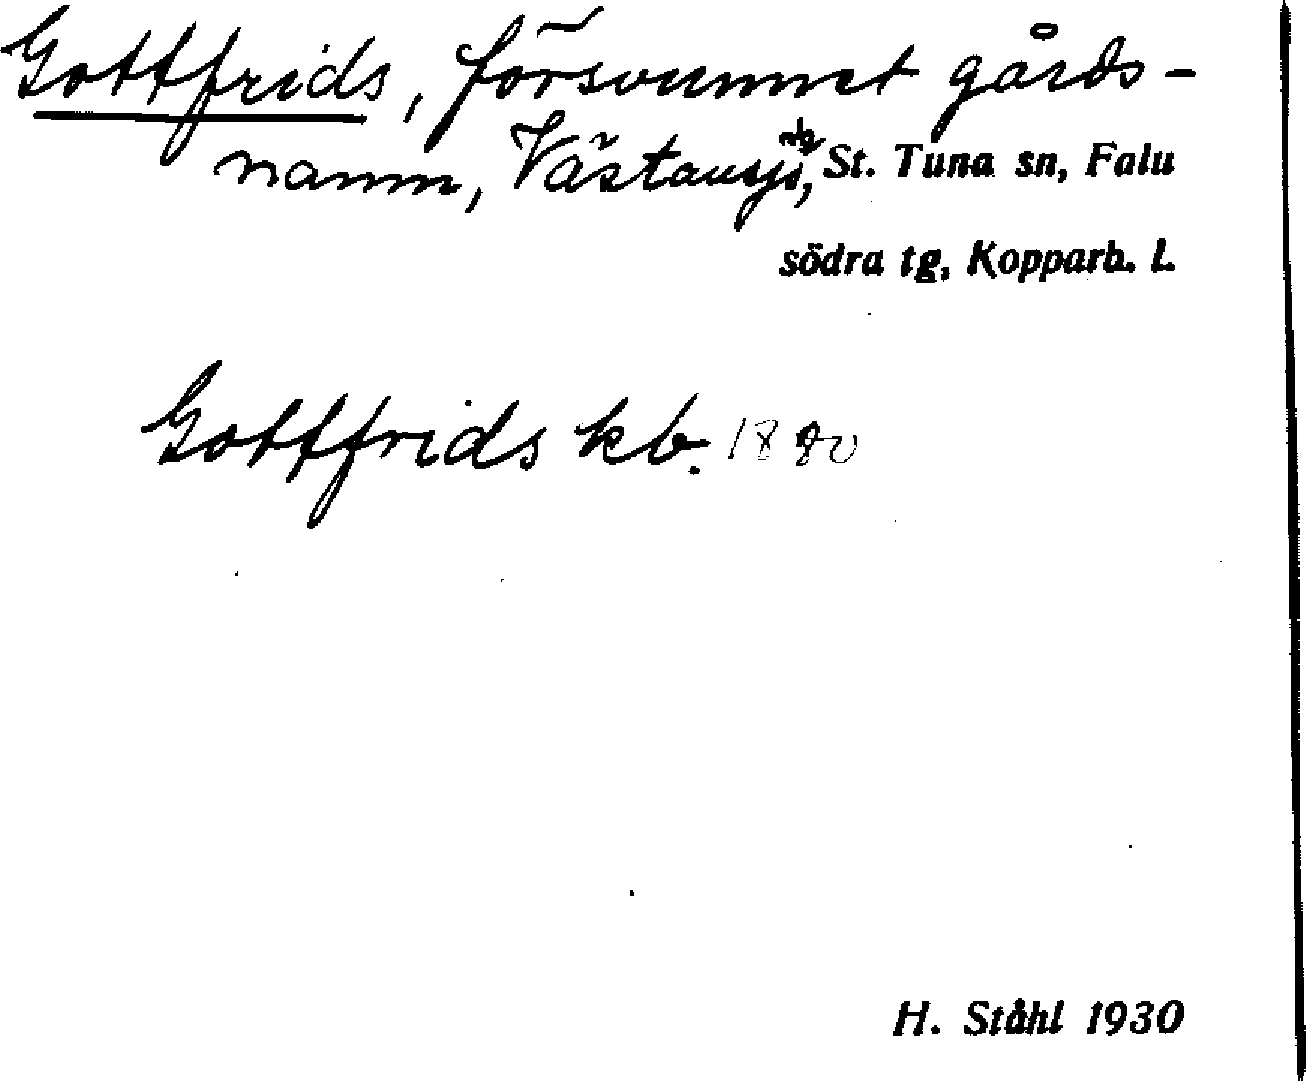 Gottfrids, försvunnet gårds-
namn, Västansjö, St. Tuna sn, Falu
södra tg, Kopparb. l.
Gottfrids kb. 1880
H. Ståhl 1930